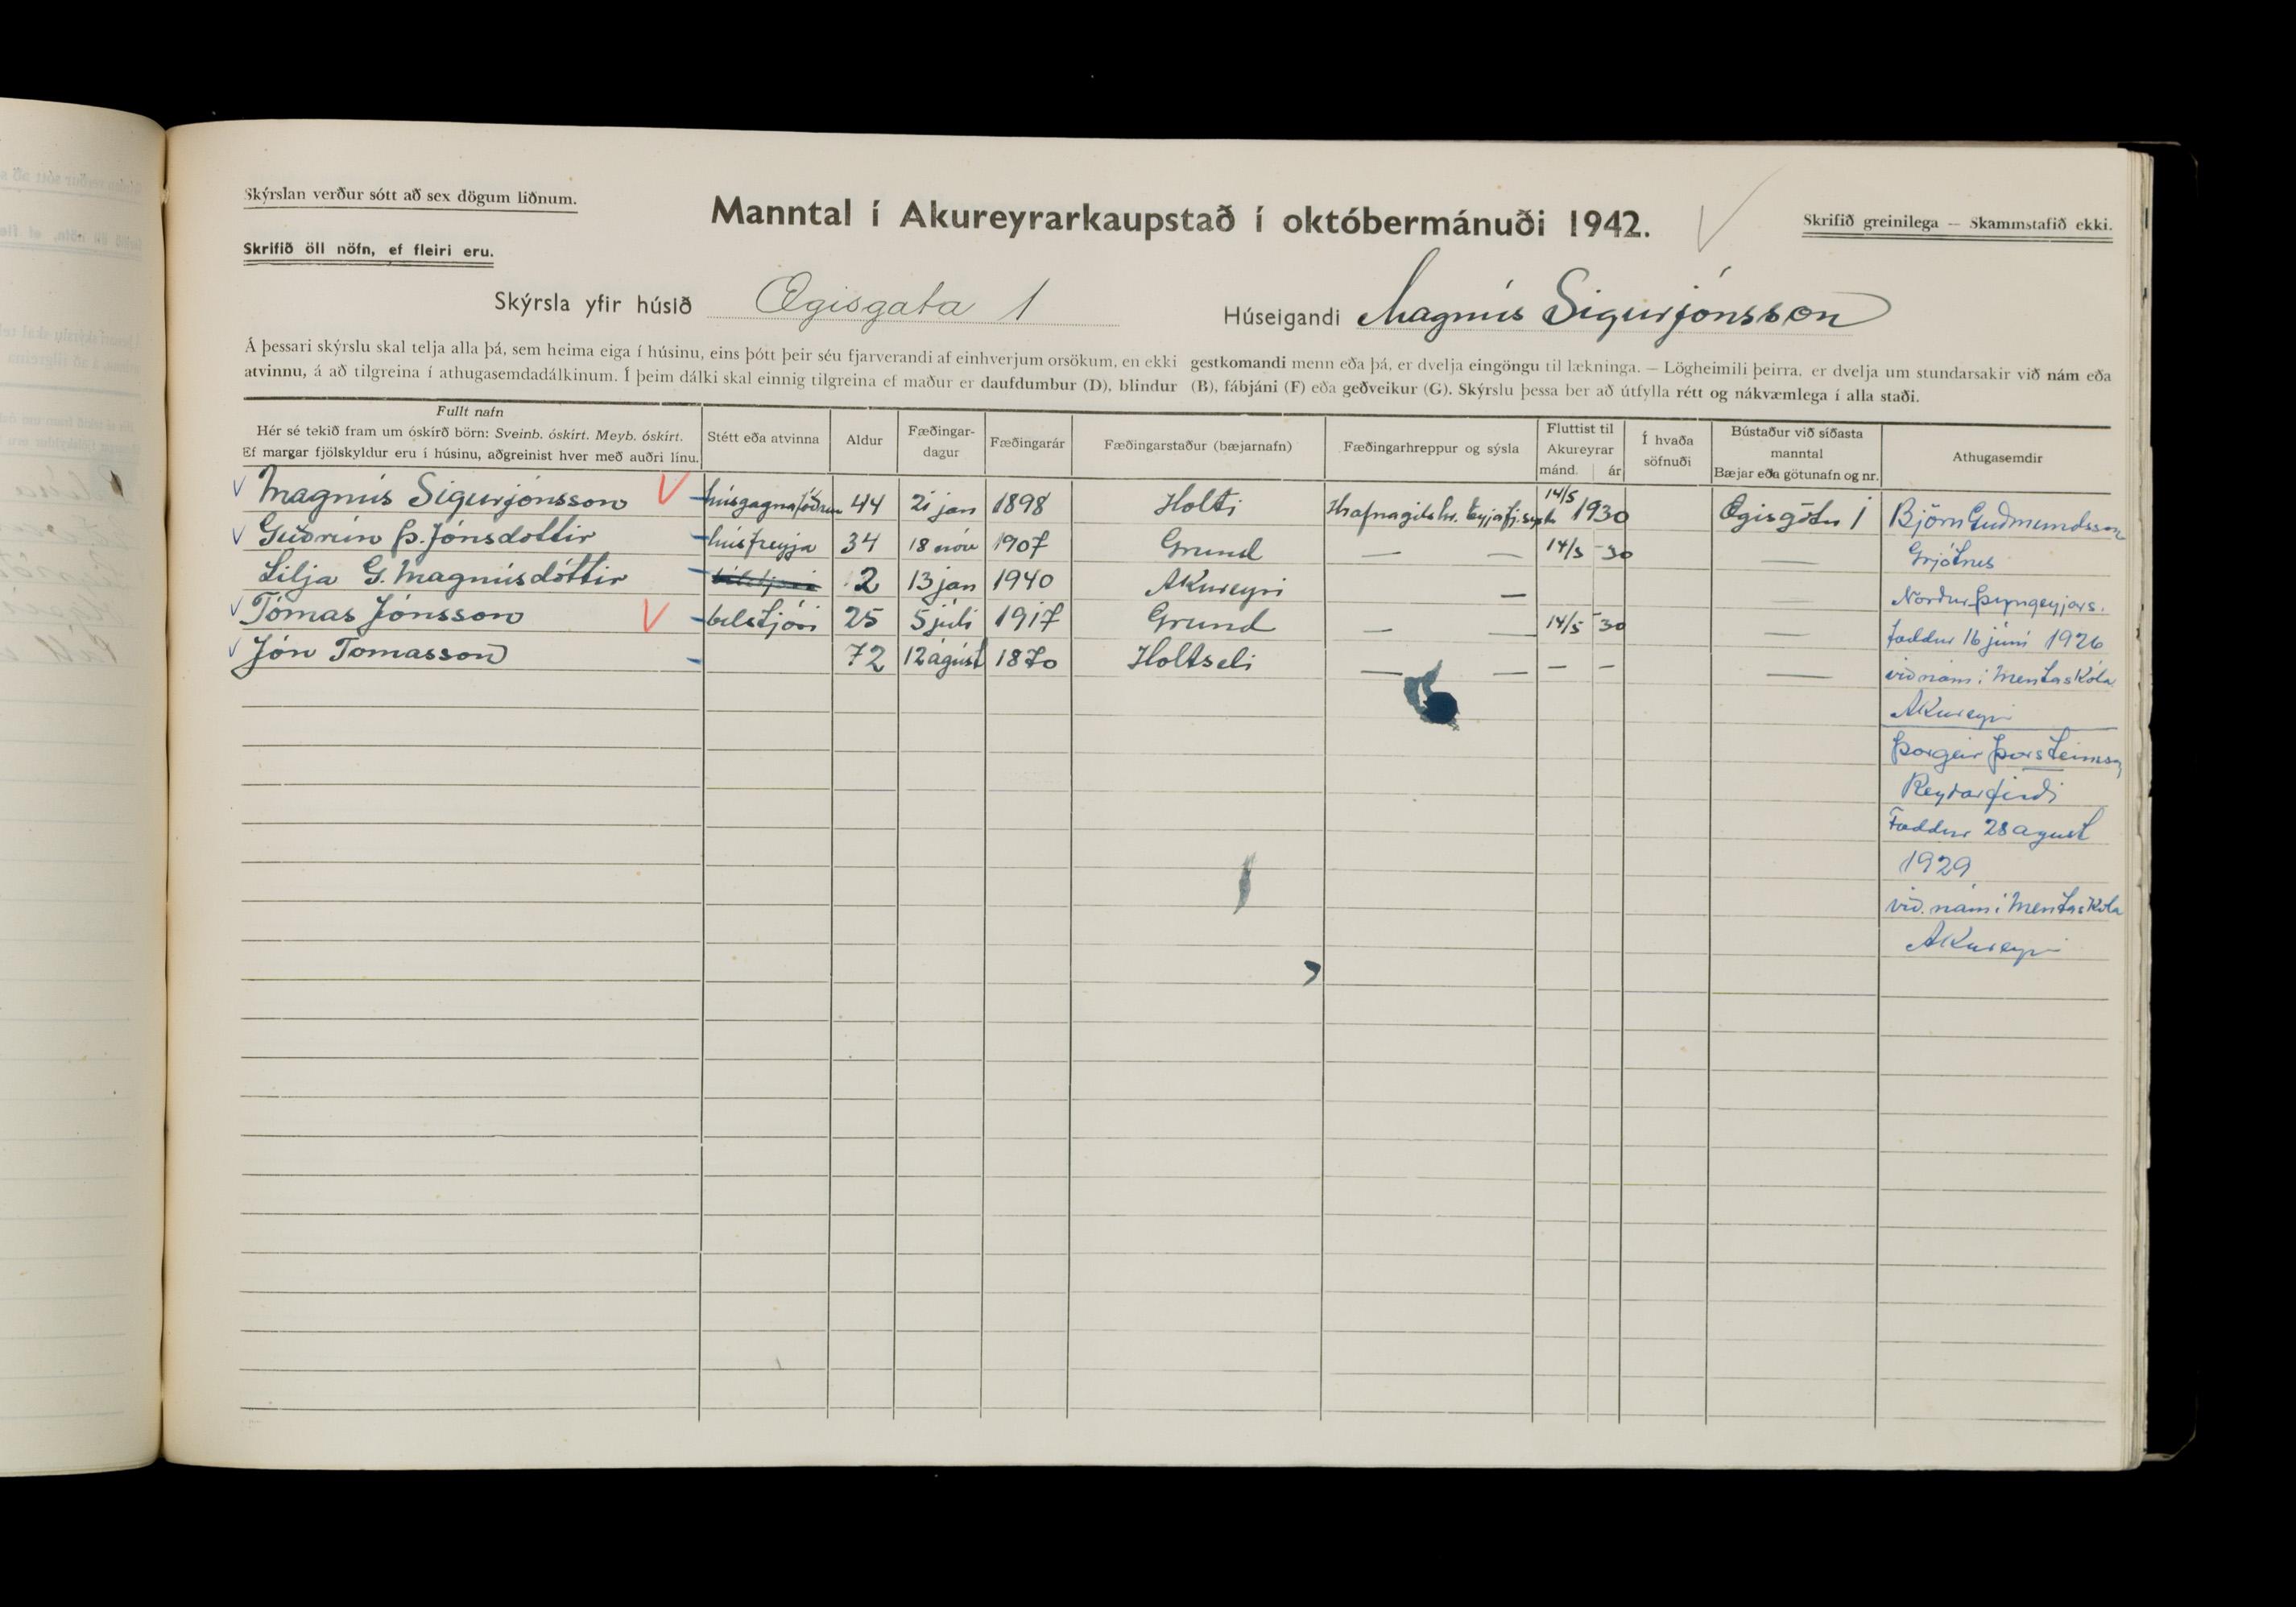 Skýrslan verður sótt að sex dögum liðnum.
Manntal í Akureyrarkaupstað í októbermánuði 1942.
Skrifið greinilega — Skammstafið ekki.
Skrifið öll nöfn, ef fleiri eru.
Skýrsla yfir húsið Ægisgata 1 Húseigandi Magnús Sigurjónsson
Á þessari skýrslu skal telja alla þá, sem heima eiga í húsinu, eins þótt þeir séu fjarverandi af einhverjum orsökum, en ekki gestkomandi menn eða þá, er dvelja eingöngu til lækninga. — Lögheimili þeirra, er dvelja um stundarsakir við nám eða
atvinnu, á að tilgreina í athugasemdadálkinum. Í þeim dálki skal einnig tilgreina ef maður er daufdumbur (D), blindur (B), fábjáni (F) eða geðveikur (G). Skýrslu þessa ber að útfylla rétt og nákvæmlega í alla staði.
Fullt nafn
Hér sé tekið fram um óskírð börn: Sveinb. óskírt. Meyb. óskírt.
Ef margar fjölskyldur eru í húsinu, aðgreinist hver með auðri línu.
Stétt eða atvinna
Aldur
Fæðingar-
dagur
Fæðingarár
Fæðingarstaður (bæjarnafn)
Fæðingarhreppur og sýsla
Fluttist til
Akureyrar
mánd. ár
Í hvaða
söfnuði
Bústaður við síðasta
manntal
Bæjar eða götunafn og nr.
Athugasemdir
Magnús Sigurjónsson 44 21 jan 1898 Holti Hrafnagilshr. Eyjafj.sýslu 14/5 1930 Ægisgötu 1
Guðrún Þ. Jónsdóttir húsfreyja 34 18 nóv 1907 Grund — — 14/5 - 30 —
Lilja G. Magnúsdóttir 2 13 jan 1940 Akureyri — —
Tómas Jónsson bílstjóri 25 5 júli 1917 Grund — — 14/5 - 30 —
Jón Tomasson 72 12 ágúst 1870 Holtseli — — — — —
Björn Guðmundsson
Grjótnes
Norður Þyngeyjars.
fæddur 16 júni 1926
við nám í Mentaskóla
Akureyri
Þorgeir Þorsteinss
Reyðarfirði
Fæddur 28 agust
1929
við nám í Mentaskóla
Akureyri